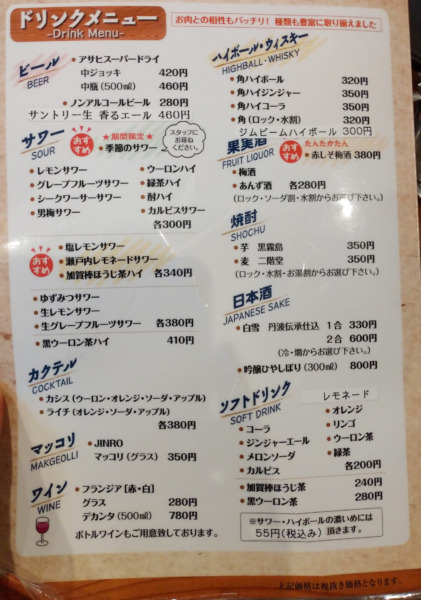 ドリンクメニュー
-Drink Menu-
お肉との相性もバッチリ! 種類も豊富に取り揃えました
ビール
BEER
・アサヒスーパードライ
中ジョッキ 420円
中瓶(500㎖) 460円
・ノンアルコールビール 280円
サントリー生 香るエール 460円
サワー
SOUR
おすすめ
★期間限定★
・季節のサワー
スタッフにお尋ねください。
・レモンサワー
・グレープフルーツサワー
・シークワーサーサワー
・男梅サワー
・ウーロンハイ
・緑茶ハイ
・酎ハイ
・カルピスサワー
各300円
おすすめ
・塩レモンサワー
・瀬戸内レモネードサワー
・加賀棒ほうじ茶ハイ 各340円
・ゆずみつサワー
・生レモンサワー
・生グレープフルーツサワー 各380円
・黒ウーロン茶ハイ 410円
カクテル
COCKTAIL
・カシス(ウーロン・オレンジ・ソーダ・アップル)
・ライチ(オレンジ・ソーダ・アップル)
各380円
マッコリ
MAKGEOLLI
・JINRO
マッコリ(グラス) 350円
ワイン
WINE
・フランジア[赤・白]
グラス 280円
デカンタ(500㎖) 780円
ボトルワインもご用意致しております。
ハイボール・ウィスキー
HIGHBALL・WHISKY
・角ハイボール 320円
・角ハイジンジャー 350円
・角ハイコーラ 350円
・角(ロック・水割) 320円
ジムビームハイボール 300円
果実酒
FRUIT LIQUOR
おすすめ
たんたかたん
・赤しそ梅酒 380円
・梅酒
・あんず酒 各280円
(ロック・ソーダ割・水割からお選び下さい。)
焼酎
SHOCHU
・芋 黒霧島 350円
・麦 二階堂 350円
(ロック・水割・お湯割からお選び下さい。)
日本酒
JAPANESE SAKE
・白雪 丹波伝承仕込 1合 330円
2合 600円
(冷・燗からお選び下さい。)
・吟醸ひやしぼり(300㎖) 800円
ソフトドリンク
SOFT DRINK
レモネード
・コーラ
・ジンジャーエール
・メロンソーダ
・カルピス
・オレンジ
・リンゴ
・ウーロン茶
・緑茶
各200円
・加賀棒ほうじ茶 240円
・黒ウーロン茶 280円
※サワー・ハイボールの濃いめには
55円(税込み)頂きます。
上記価格は税抜き価格となります。